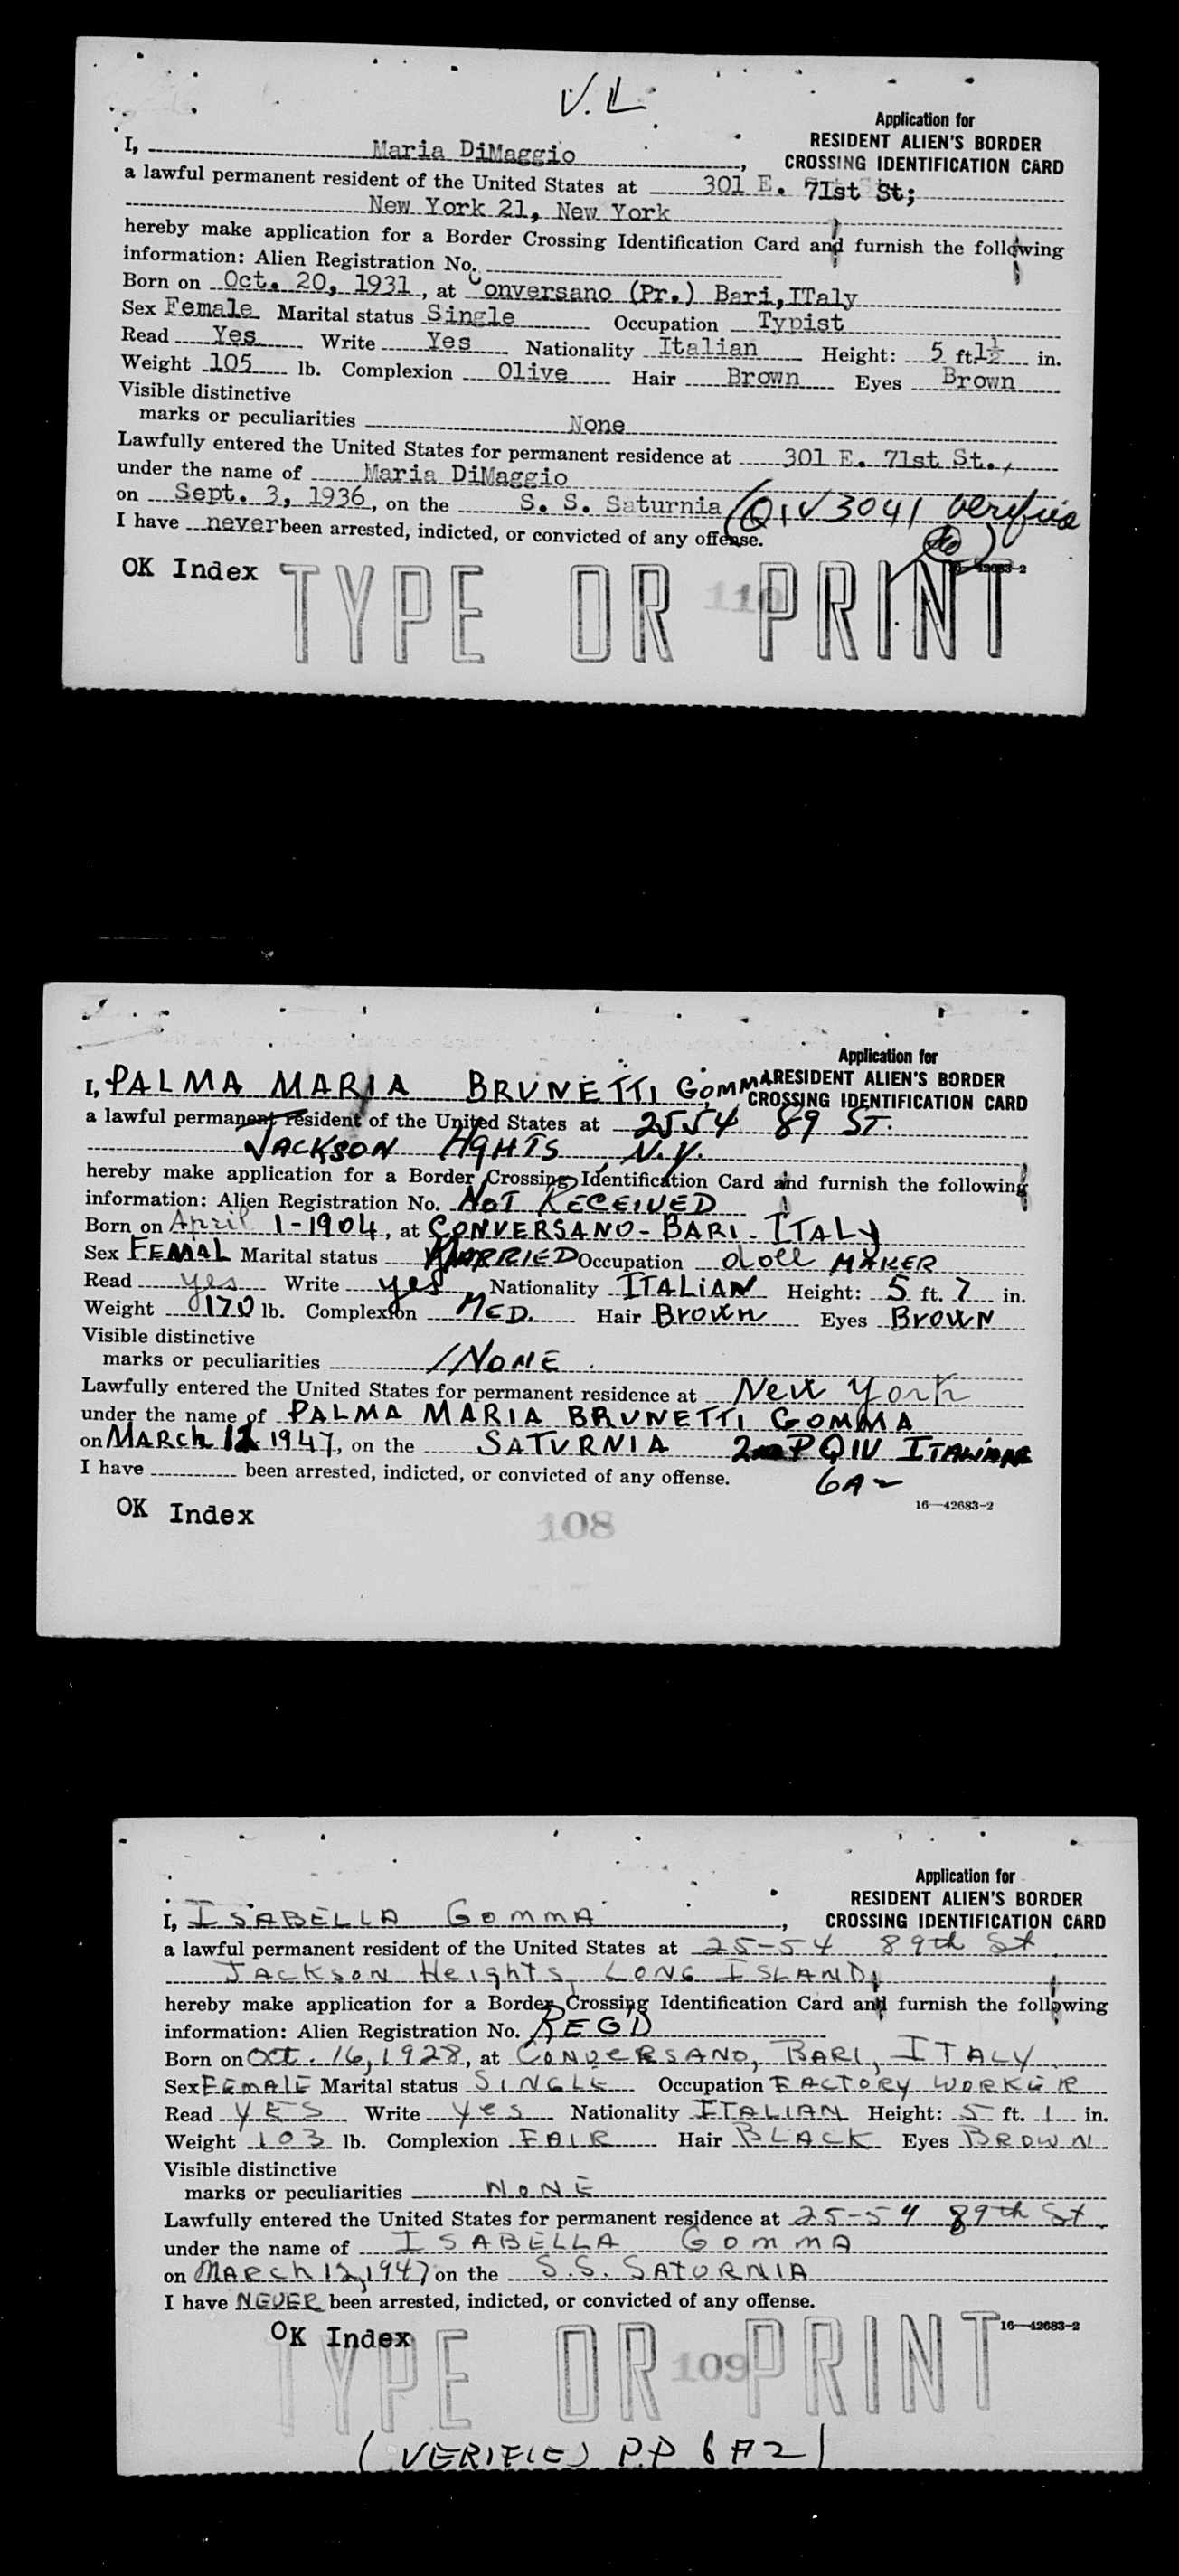 V.L
Application for
RESIDENT ALIEN'S BORDER
CROSSING IDENTIFICATION CARD
I, Maria DiMaggio,
a lawful permanent resident of the United States at 301 E. 71st St;
New York 21, New York
hereby make application for a Border Crossing Identification Card and furnish the following
information: Alien Registration No.
Born on Oct. 20, 1931, at Conversano (Pr.) Bari, ITaly
Sex Female Marital status Single Occupation Typist
Read Yes Write Yes Nationality Italian Height: 5 ft. 1½ in.
Weight 105 lb. Complexion Olive Hair Brown Eyes Brown
Visible distinctive
marks or peculiarities None
Lawfully entered the United States for permanent residence at 301 E. 71st St.,
under the name of Maria DiMaggio
on Sept. 3, 1936, on the S. S. Saturnia (QIV 3041 verified
I have never been arrested, indicted, or convicted of any offense.
OK Index
16—42683-2
TYPE OR PRINT
110
Application for
RESIDENT ALIEN'S BORDER
CROSSING IDENTIFICATION CARD
I, PALMA MARIA BRUNETTI GOMMA
a lawful permanent resident of the United States at 2554 89 ST.
JACKSON HgHTS, N.Y.
hereby make application for a Border Crossing Identification Card and furnish the following
information: Alien Registration No. NOT RECEIVED
Born on April 1-1904, at CONVERSANO-BARI-ITALY
Sex FEMAL Marital status MARRIED Occupation doll MAKER
Read yes Write yes Nationality ITALIAN Height: 5 ft. 7 in.
Weight 170 lb. Complexion MED. Hair Brown Eyes BROWN
Visible distinctive
marks or peculiarities NONE
Lawfully entered the United States for permanent residence at New York
under the name of PALMA MARIA BRUNETTI GOMMA
on MARCH 12 1947, on the SATURNIA P QIV ITALIAN
I have been arrested, indicted, or convicted of any offense.
6A2
OK Index
16—42683-2
108
Application for
RESIDENT ALIEN'S BORDER
CROSSING IDENTIFICATION CARD
I, ISABELLA GOMMA,
a lawful permanent resident of the United States at 25-54 89th St
JACKSON HeIghTS, LONG ISLAND,
hereby make application for a Border Crossing Identification Card and furnish the following
information: Alien Registration No. REGD
Born on Oct. 16, 1928, at CONVERSANO, BARI, ITALY
Sex FEMALE Marital status SINGLE Occupation FACTORY WORKER
Read YES Write yes Nationality ITALIAN Height: 5 ft. 1 in.
Weight 103 lb. Complexion FAIR Hair BLACK Eyes BROWN
Visible distinctive
marks or peculiarities NONE
Lawfully entered the United States for permanent residence at 25-54 89th St.
under the name of ISABELLA GOMMA
on MARCh 12, 1947 on the S.S. SATURNIA
I have NEVER been arrested, indicted, or convicted of any offense.
OK Index
16—42683-2
TYPE OR PRINT
109
(VERIFIED P.P 6A2)